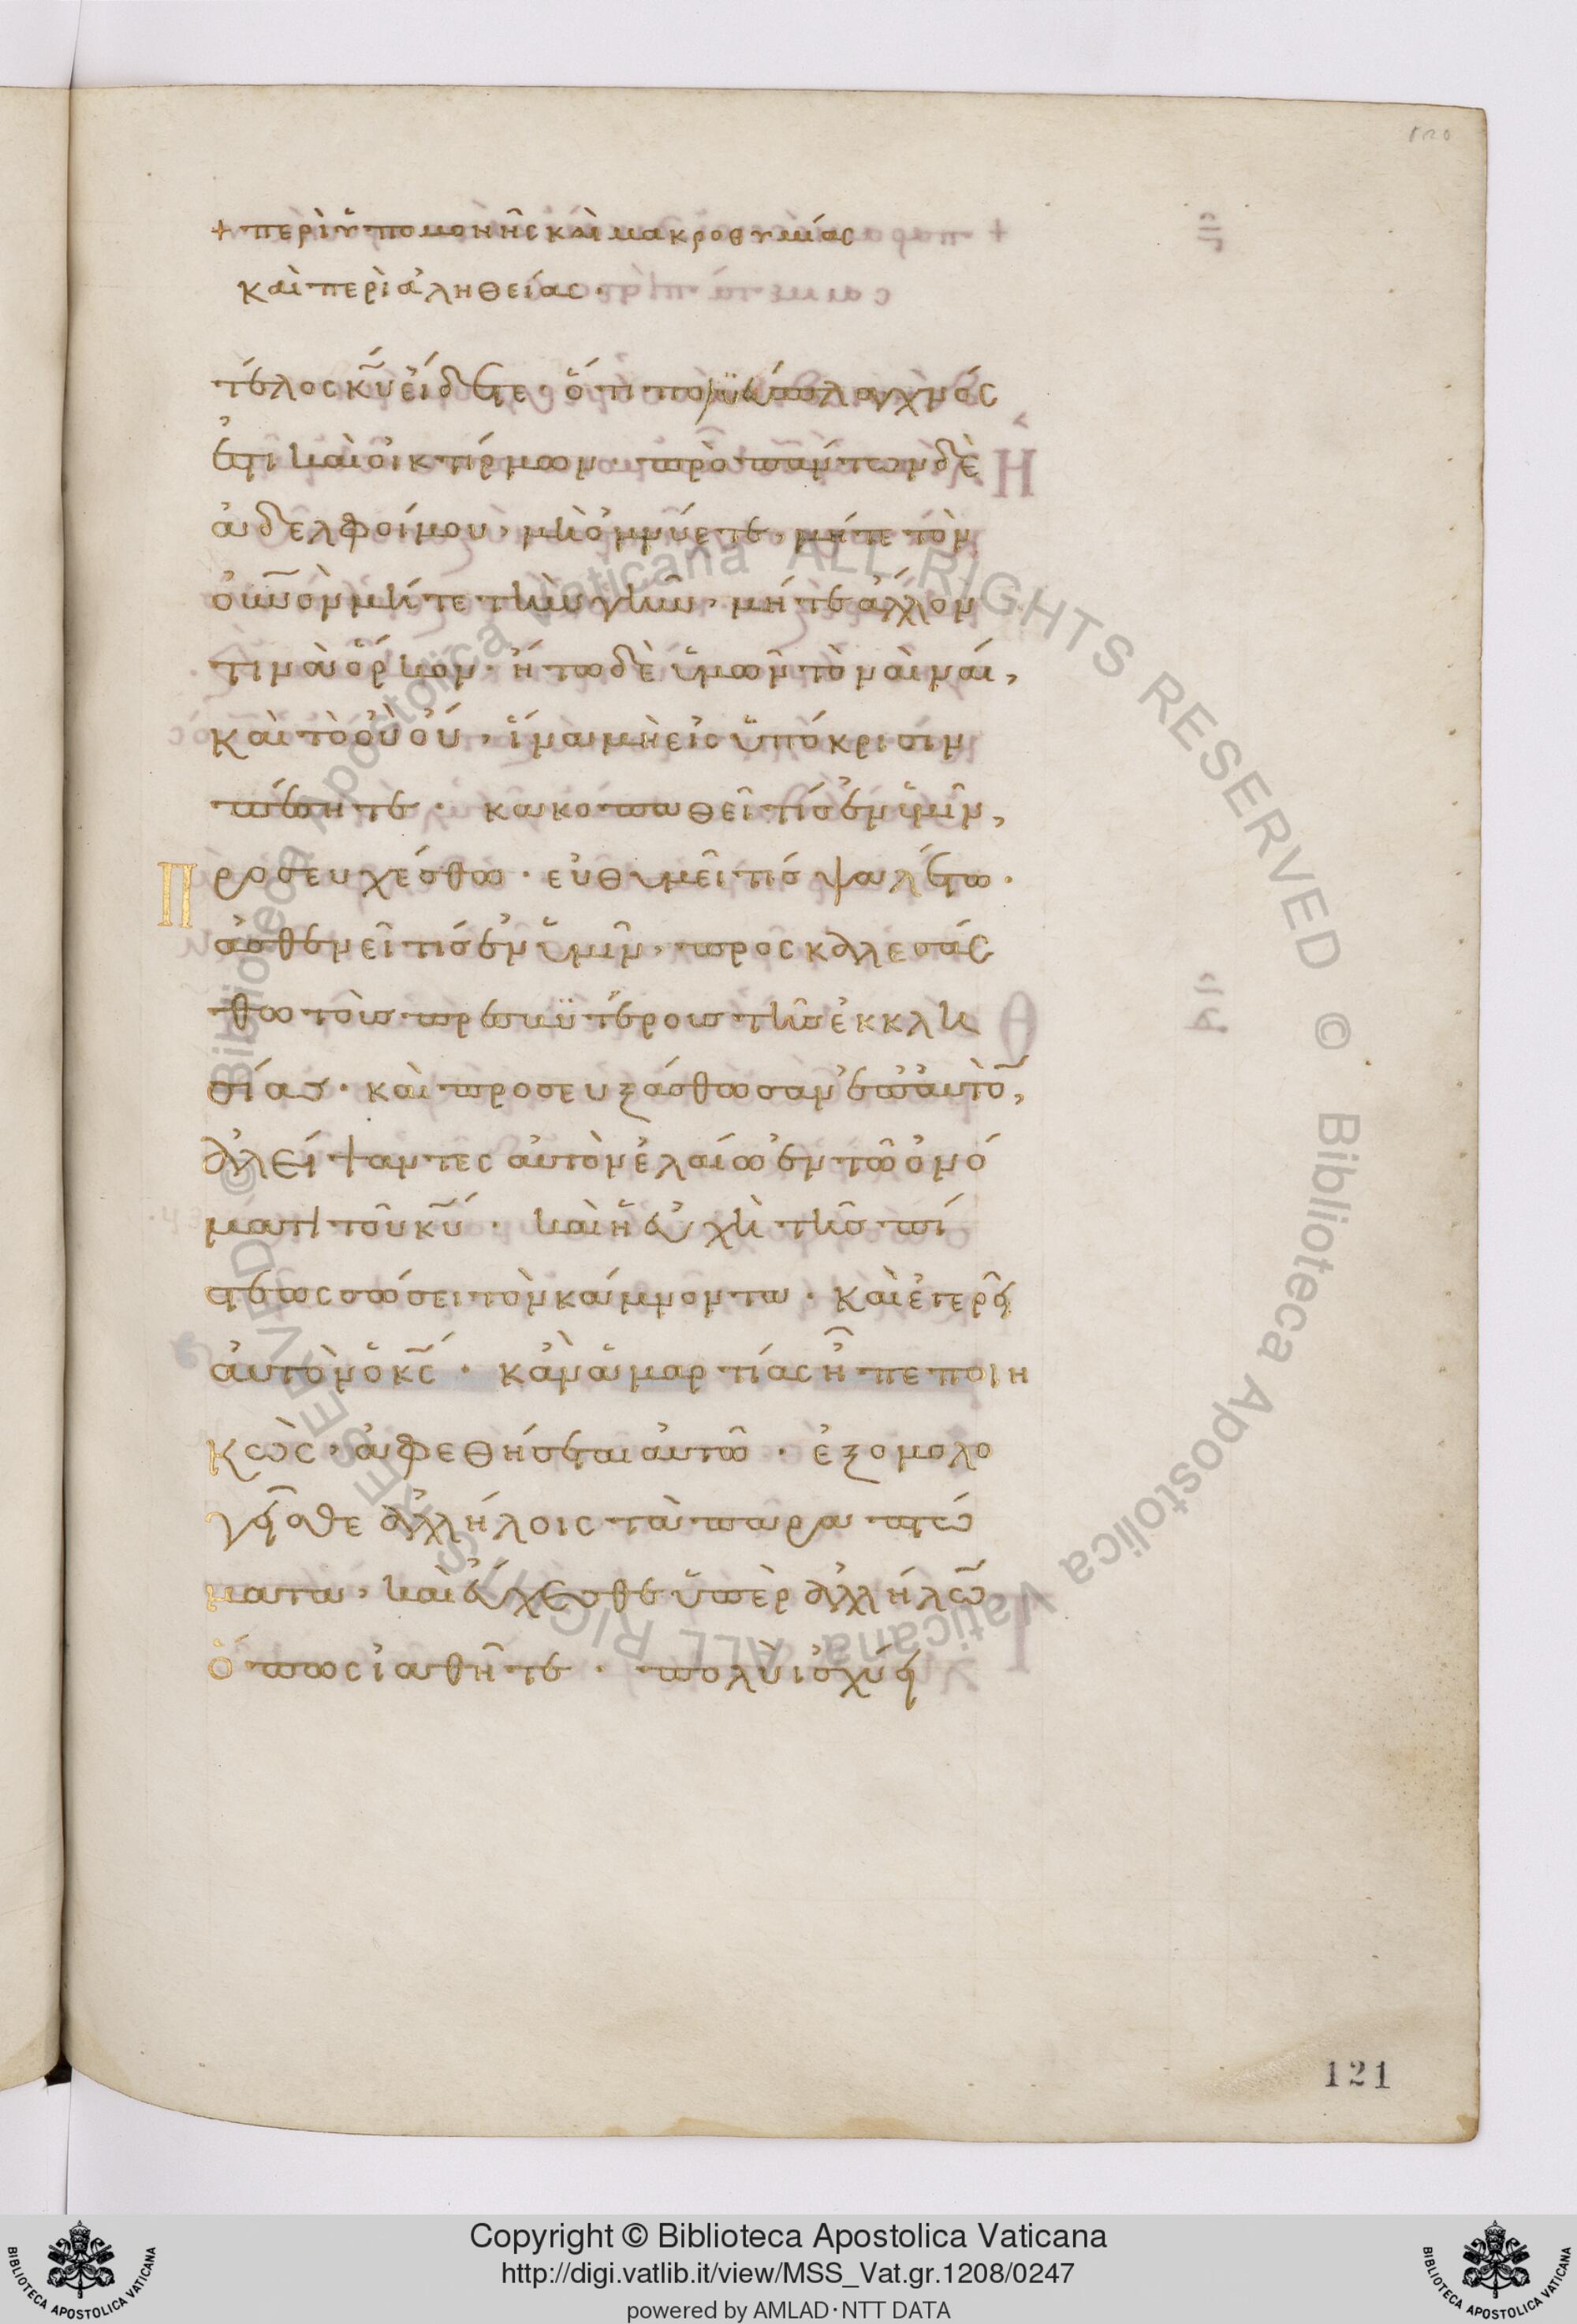 + περὶ ὑπομονῆς καὶ μακροθυμίας
καὶ περὶ ἀληθείας·
τέλος κ̅υ̅ εἴδετε· ὅτι πολυεύσπλαγχνός
ἐστι καὶ οἰκτίρμων· πρὸ πάντων δὲ
ἀδελφοί μου, μὴ ὀμνύετε, μήτε τὸν
ο̅υ̅ν̅ο̅ν μήτε τὴν γῆν, μήτε ἄλλον
τινὰ ὅρκον· ἤτω δὲ ὑμῶν τὸ ναὶ ναί,
καὶ τὸ οὒ οὔ, ἵνα μὴ εἰς ὑπόκρισιν
πέσητε· κακοπαθεῖ τίς ἐν ὑμῖν,
Προσευχέσθω· εὐθυμεῖ τίς ψαλέτω·
ἀσθενεῖ τίς ἐν ὑμῖν, προσκαλεσάσ
θω τοὺς πρεσβυτέρους τῆς ἐκκλη
σίας· καὶ προσευξάσθωσαν ἐπ' αὐτὸ̅,
ἀλείψαντες αὐτὸν ἐλαίω ἐν τῶ ὀνό
ματι τοῦ κ̅υ̅· καὶ ἡ εὐχὴ τῆς πί
στεως σώσει τὸν κάμνοντα· καὶ ἐγερεῖ
αὐτὸν ὁ κ̅ς̅· κἂν ἁμαρτίας ἦ πεποιη
κὼς, ἀφεθήσεται αὐτῶ· ἐξομολο
γεῖσθε ἀλλήλοις τὰ παραπτώ
ματα, καὶ εὔχεσθε ὑπὲρ ἀλλήλω̅
ὅπως ἰαθῆτε· πολὺ ἰσχύει
121
© Biblioteca Apostolica Vaticana ALL RIGHTS RESERVED © Biblioteca Apostolica Vaticana ALL RIGHTS RESERVED
Copyright © Biblioteca Apostolica Vaticana
http://digi.vatlib.it/view/MSS_Vat.gr.1208/0247
powered by AMLAD·NTT DATA
BIBLIOTECA APOSTOLICA VATICANA
BIBLIOTECA APOSTOLICA VATICANA